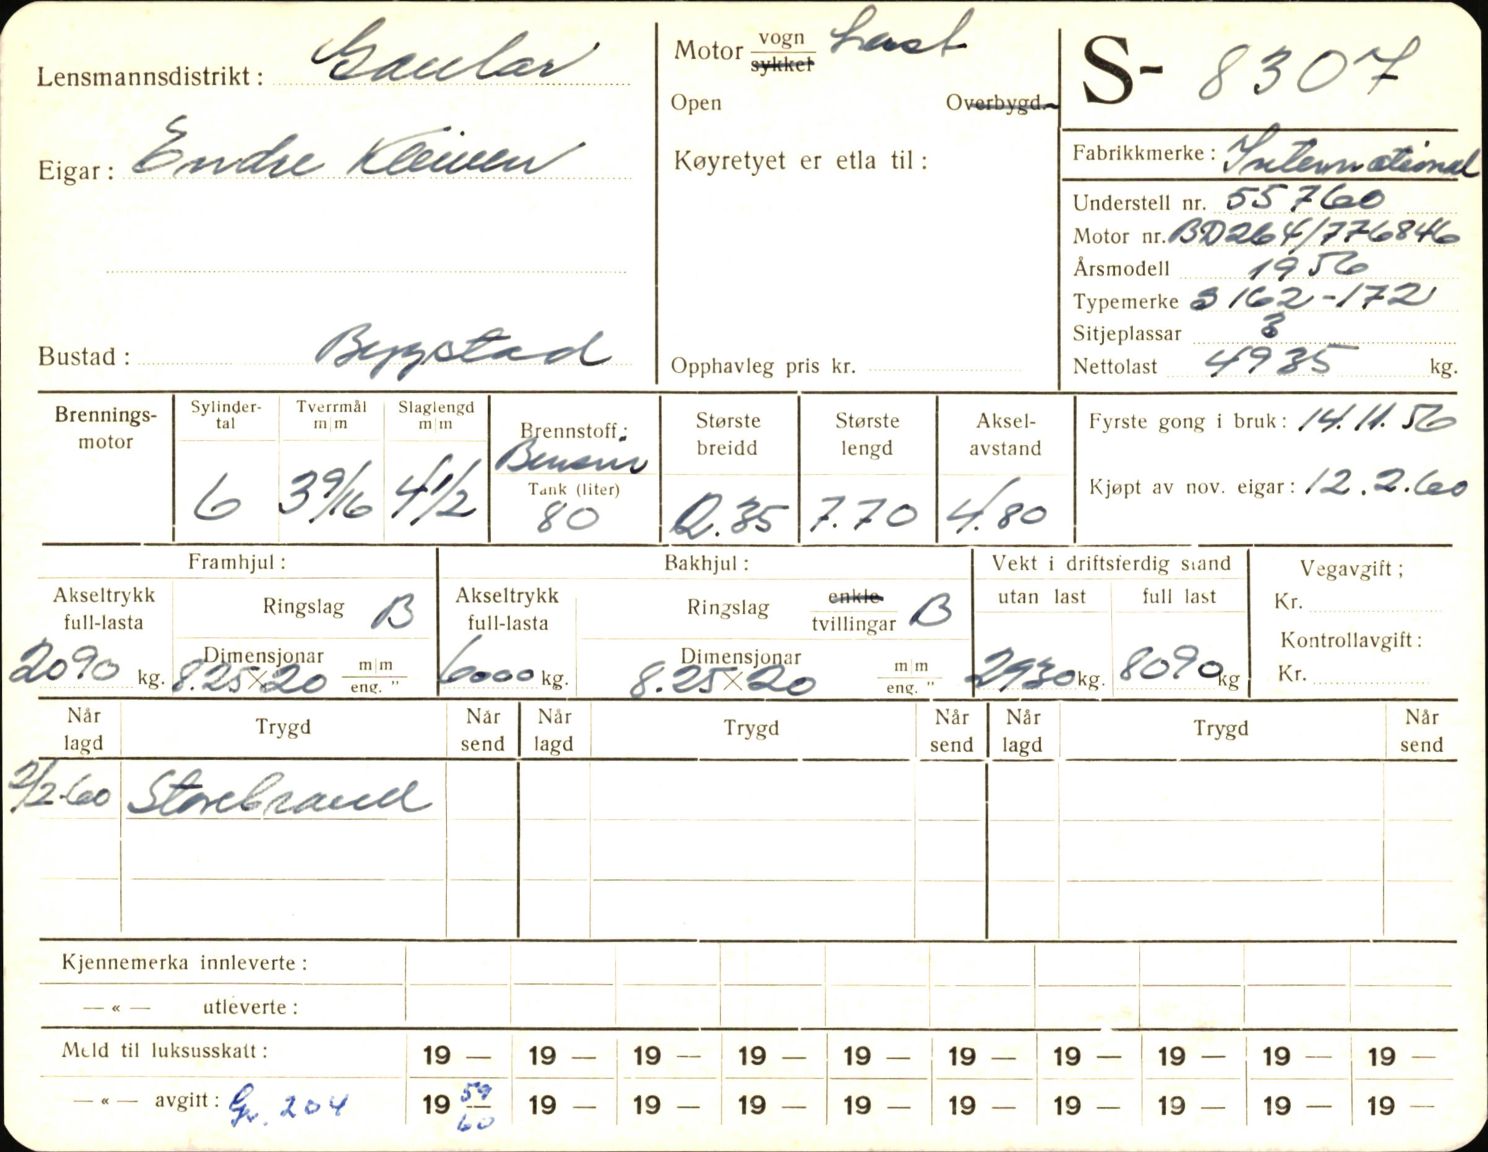 Lensmannsdistrikt: Gaular
Eigar: Endre Kleiven
Bustad: Bygstad
Motor vogn sykkel Last
Open Overbygd.
Køyretyet er etla til:
Opphavleg pris kr.
S- 8307
Fabrikkmerke: International
Understell nr. 55760
Motor nr. BD264/776846
Årsmodell 1956
Typemerke S 162-172
Sitjeplassar 3
Nettolast 4935 kg.
Brennings-
motor
Sylinder-
tal
6
Tverrmål
m|m
3 9/16
Slaglengd
m|m
4 1/2
Brennstoff:
Bensin
Tank (liter)
80
Største
breidd
2.35
Største
lengd
7.70
Aksel-
avstand
4.80
Fyrste gong i bruk: 14.11.56
Kjøpt av nov. eigar: 12.2.60
Framhjul:
Akseltrykk
full-lasta
2090 kg.
Ringslag B
Dimensjonar
8.25×20 m|m eng. "
Bakhjul:
Akseltrykk
full-lasta
6000 kg.
Ringslag enkle tvillingar B
Dimensjonar
8.25×20 m|m eng. "
Vekt i driftsferdig stand
utan last full last
2930 kg. 8090 kg
Vegavgift;
Kr.
Kontrollavgift:
Kr.
Når lagd Trygd Når send Når lagd Trygd Når send Når lagd Trygd Når send
2/2-60 Storebrand
Kjennemerka innleverte:
— « — utleverte:
Meld til luksusskatt: 19 — 19 — 19 — 19 — 19 — 19 — 19 — 19 — 19 — 19 —
— « — avgift: Gr. 204 19 59/60 19 — 19 — 19 — 19 — 19 — 19 — 19 — 19 — 19 —